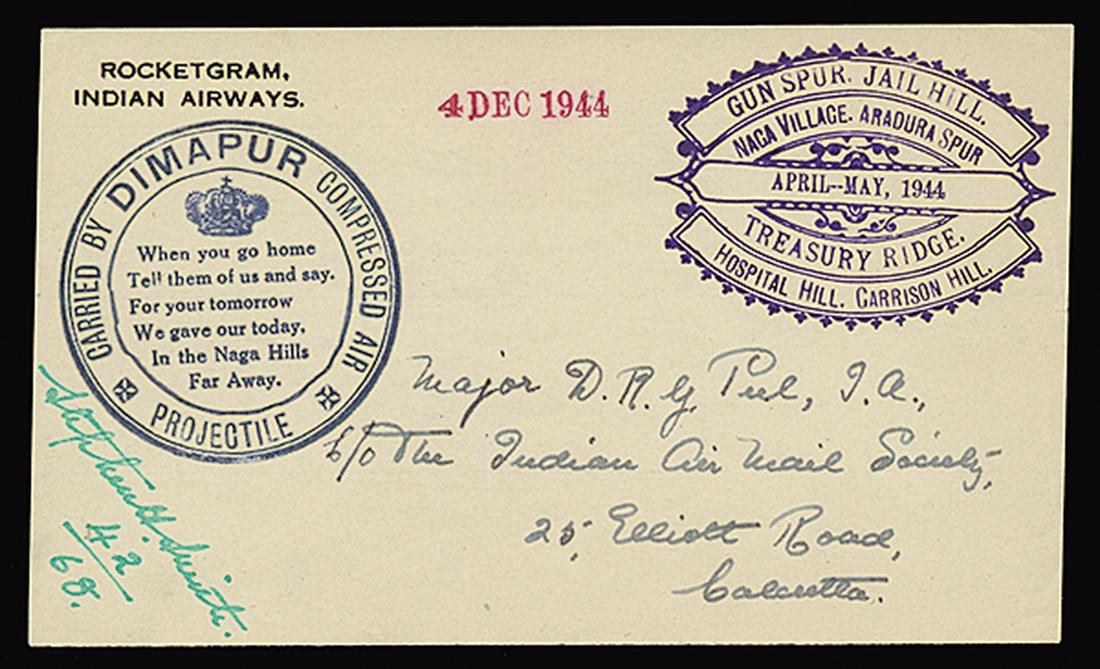 ROCKETGRAM,
INDIAN AIRWAYS.
4 DEC 1944
GUN SPUR. JAIL HILL.
NAGA VILLAGE. ARADURA SPUR
APRIL--MAY, 1944
TREASURY RIDGE.
HOSPITAL HILL. GARRISON HILL.
CARRIED BY DIMAPUR COMPRESSED AIR
PROJECTILE
When you go home
Tell them of us and say.
For your tomorrow
We gave our today.
In the Naga Hills
Far Away.
Major D. R. G. Peel, I. A.,
c/o The Indian Air Mail Society,
25, Elliott Road,
Calcutta.
Stephen H. Smith.
42
68.